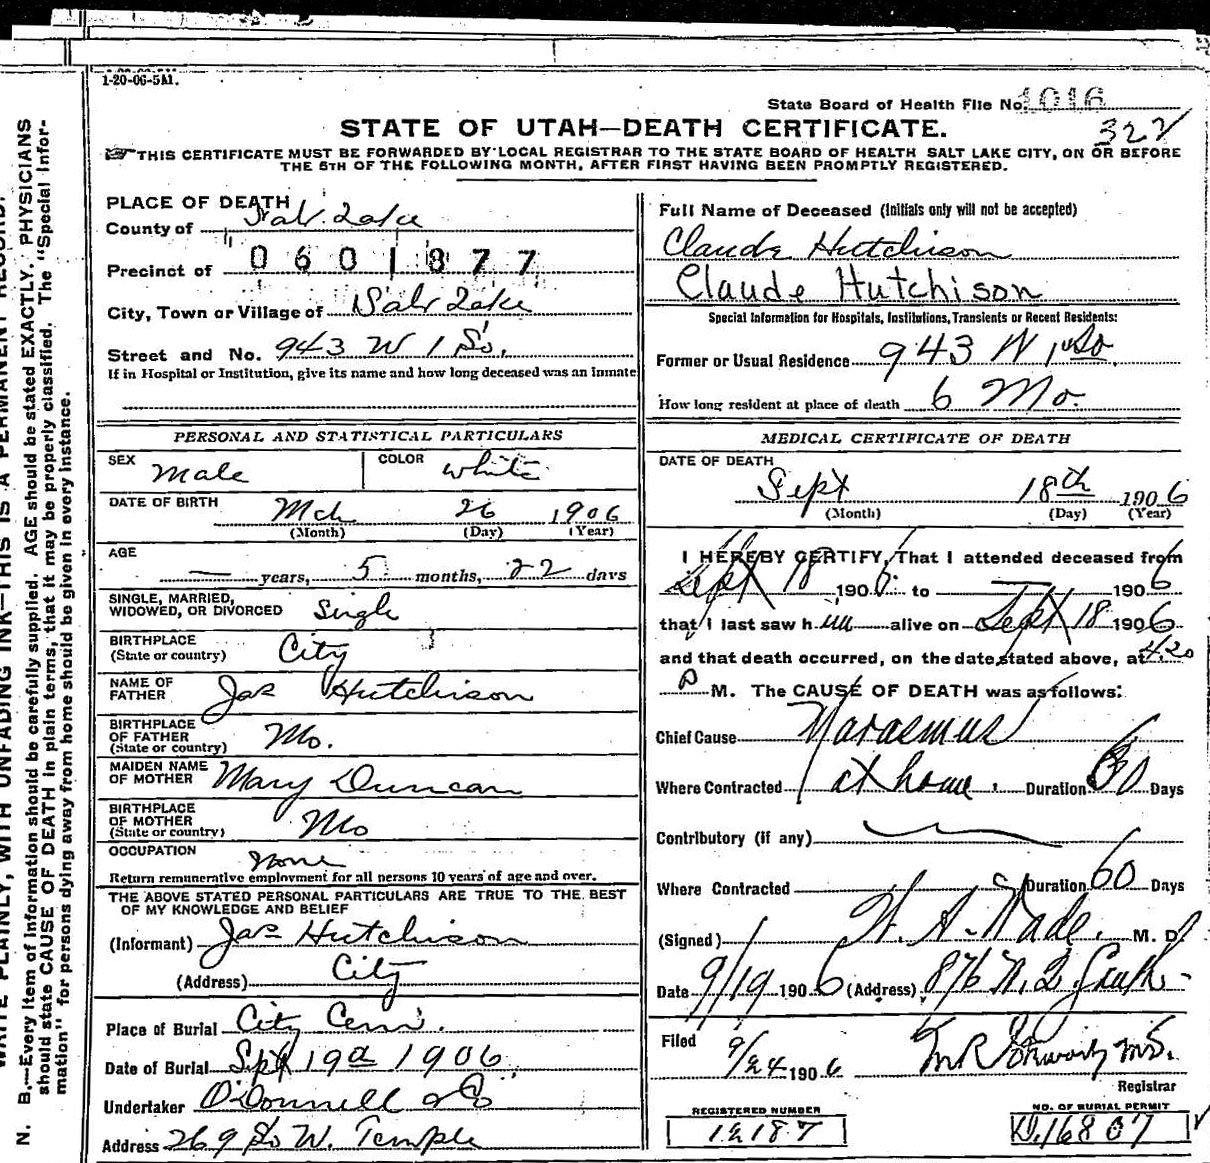 1-20-06-5M.
State Board of Health File No. 1016
322
STATE OF UTAH—DEATH CERTIFICATE.
THIS CERTIFICATE MUST BE FORWARDED BY LOCAL REGISTRAR TO THE STATE BOARD OF HEALTH SALT LAKE CITY, ON OR BEFORE
THE 5TH OF THE FOLLOWING MONTH, AFTER FIRST HAVING BEEN PROMPTLY REGISTERED.
PLACE OF DEATH
County of Salt Lake
Precinct of 0601877
City, Town or Village of Salt Lake
Street and No. 943 W 1 So.
If in Hospital or Institution, give its name and how long deceased was an inmate
Full Name of Deceased (Initials only will not be accepted)
Claude Hutchison
Claude Hutchison
Special Information for Hospitals, Institutions, Transients or Recent Residents:
Former or Usual Residence 943 W 1st So
How long resident at place of death 6 Mo.
PERSONAL AND STATISTICAL PARTICULARS
SEX Male COLOR white
DATE OF BIRTH Mch 26 1906
(Month) (Day) (Year)
AGE
— years, 5 months, 22 days
SINGLE, MARRIED,
WIDOWED, OR DIVORCED Single
BIRTHPLACE
(State or country) City
NAME OF
FATHER Jas Hutchison
BIRTHPLACE
OF FATHER
(State or country) Mo.
MAIDEN NAME
OF MOTHER Mary Duncan
BIRTHPLACE
OF MOTHER
(State or country) Mo
OCCUPATION None
Return remunerative employment for all persons 10 years of age and over.
THE ABOVE STATED PERSONAL PARTICULARS ARE TRUE TO THE BEST
OF MY KNOWLEDGE AND BELIEF
(Informant) Jas Hutchison
(Address) City
Place of Burial City Cem.
Date of Burial Sept 19th 1906
Undertaker O'Donnell & Co
Address 269 So W. Temple
MEDICAL CERTIFICATE OF DEATH
DATE OF DEATH
Sept 18th 1906
(Month) (Day) (Year)
I HEREBY CERTIFY, That I attended deceased from
Sept 18 1906 to — 1906
that I last saw him alive on Sept 18 1906
and that death occurred, on the date stated above, at 4.20
P M. The CAUSE OF DEATH was as follows:
Chief Cause Marasmus
Where Contracted at home. Duration 60 Days
Contributory (if any)
Where Contracted Duration 60 Days
(Signed) W. A. Wade. M. D.
Date 9/19 1906 (Address) 876 W. 2 South
Filed 9/24 1906
Registrar
REGISTERED NUMBER
12187
NO. OF BURIAL PERMIT
D.16807
WRITE PLAINLY, WITH UNFADING INK—THIS IS A PERMANENT RECORD.
N. B.—Every item of information should be carefully supplied. AGE should be stated EXACTLY. PHYSICIANS
should state CAUSE OF DEATH in plain terms, that it may be properly classified. The "Special Infor-
mation" for persons dying away from home should be given in every instance.